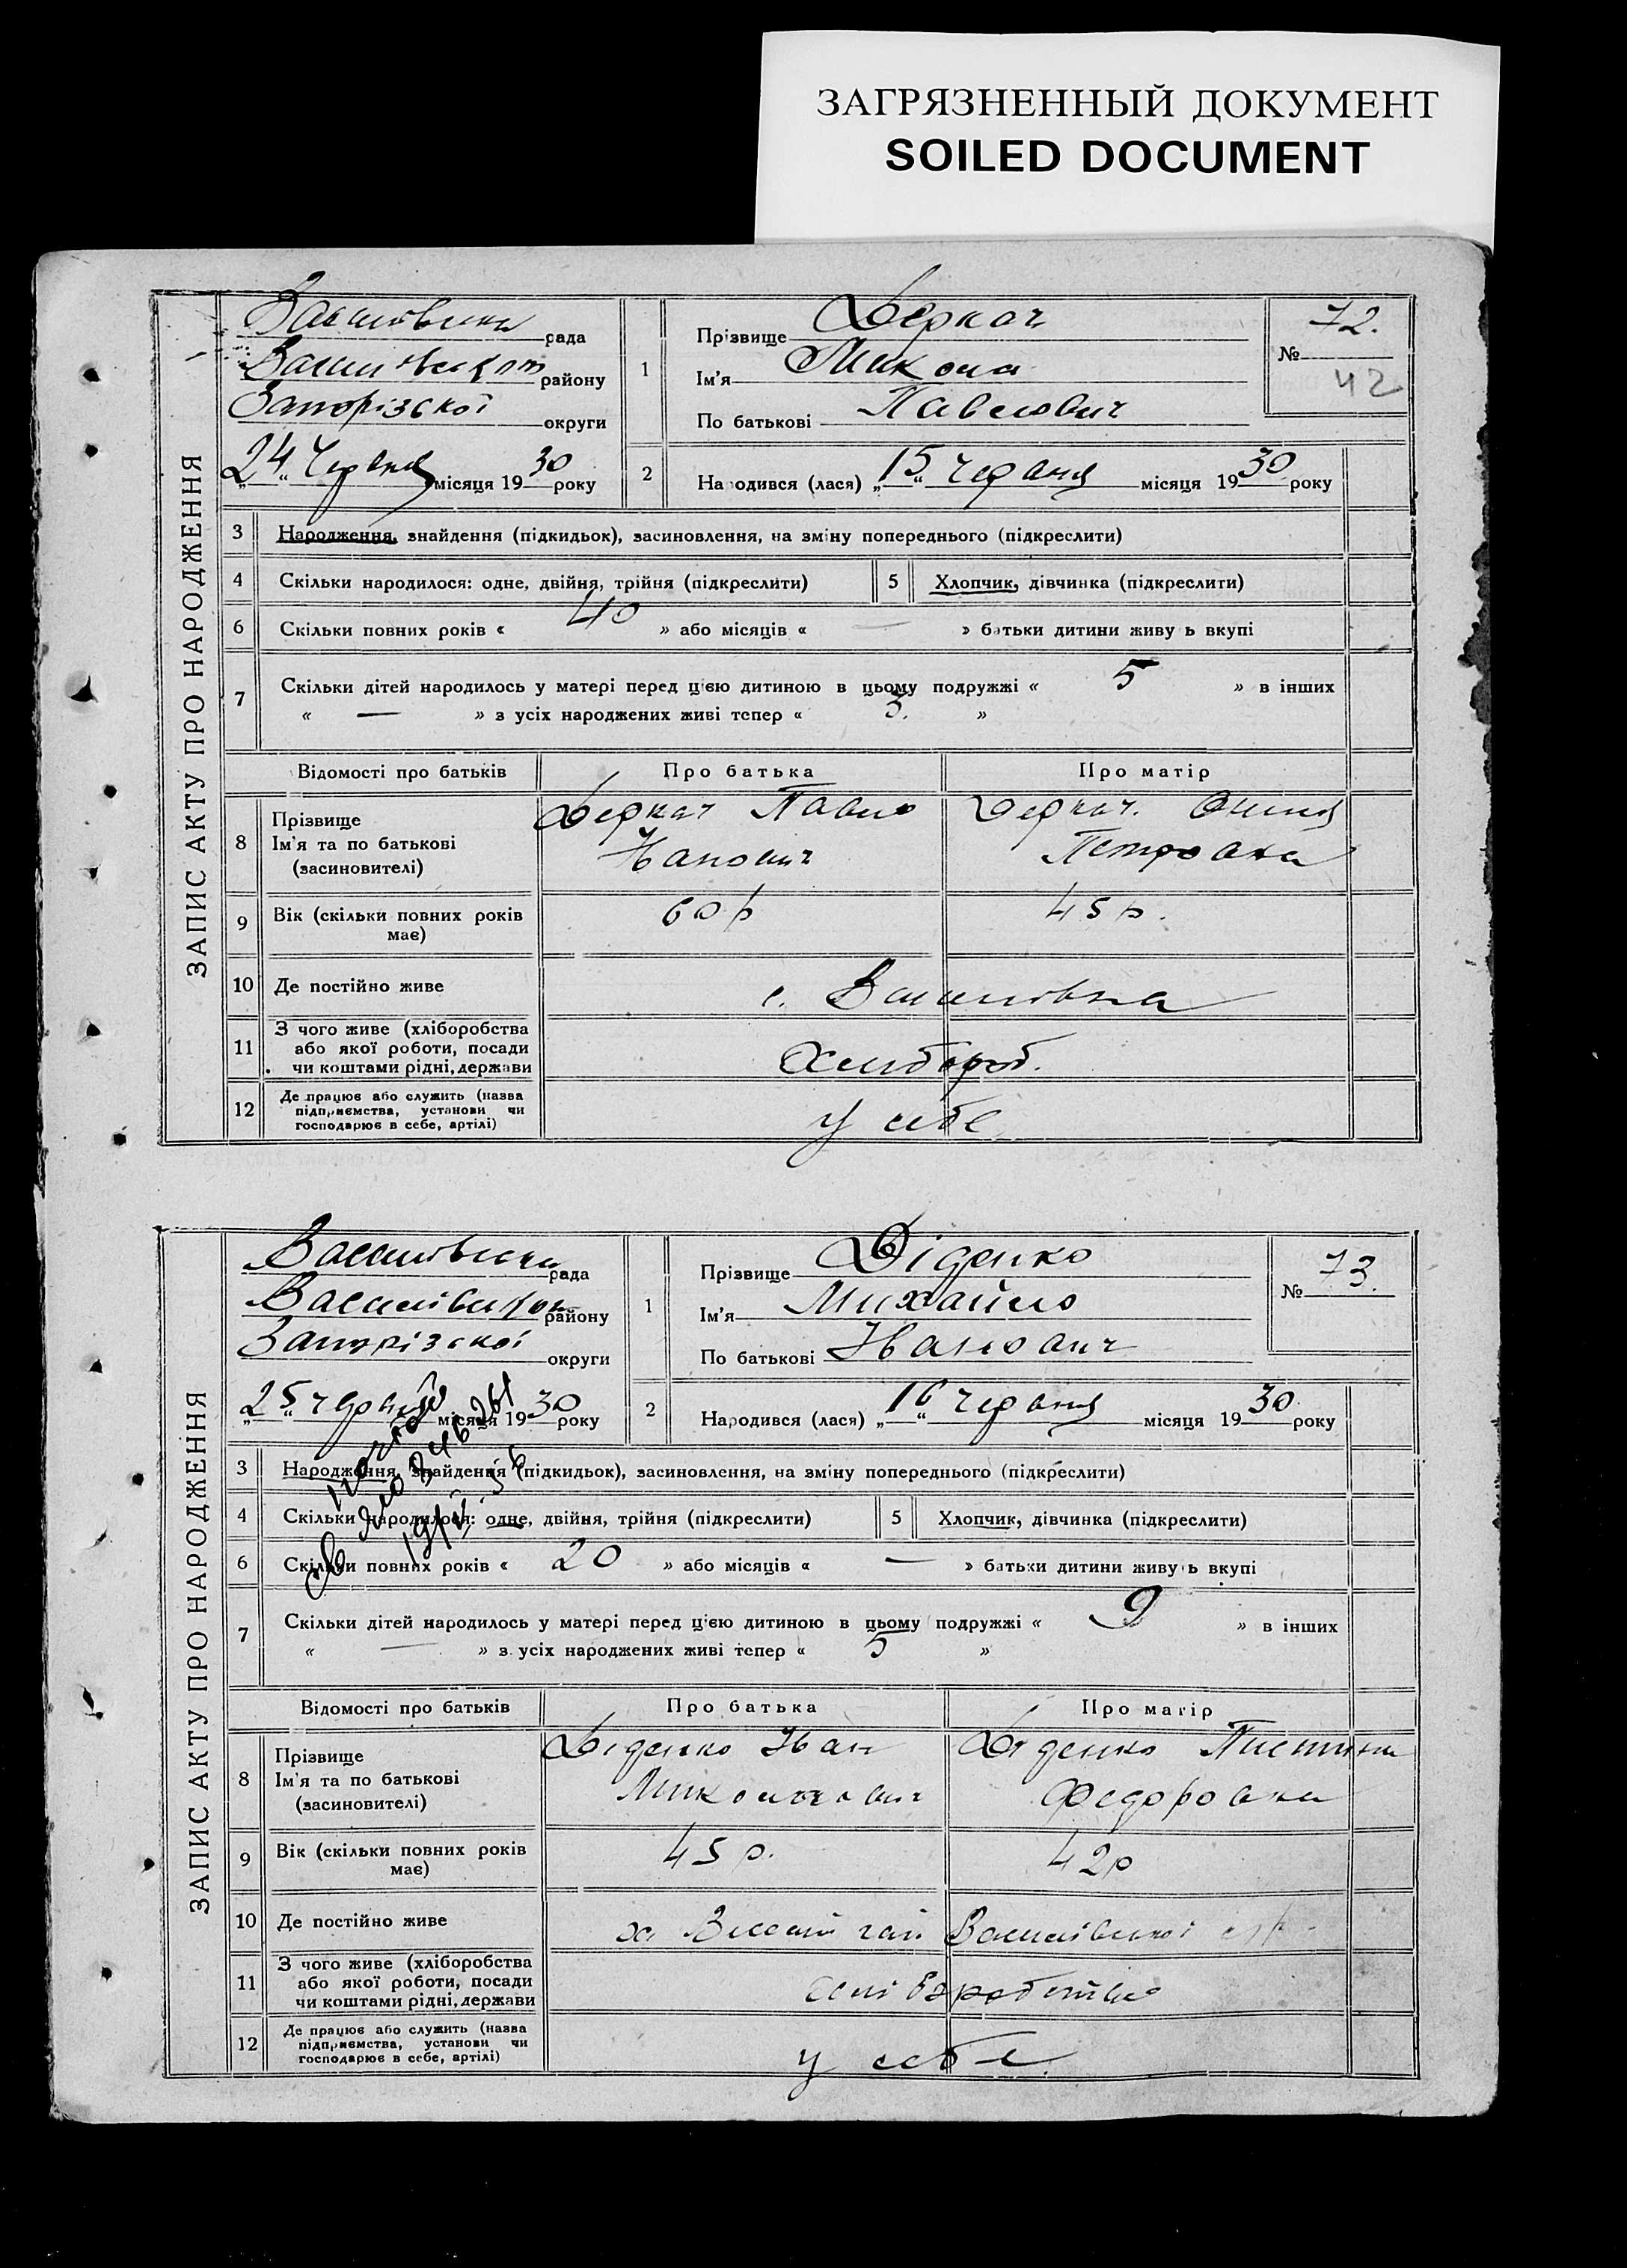 ЗАГРЯЗНЕННЫЙ ДОКУМЕНТ
SOILED DOCUMENT
ЗАПИС АКТУ ПРО НАРОДЖЕННЯ
рада
району
Запорізької округи
„24“ Червня місяця 1930 року
1 Прізвище Деркач
Ім'я Микола
По батькові Павлович
№ 72.
42
2 Народився (лася) „15“ Червня місяця 1930 року
3 Народження, знайдення (підкидьок), засиновлення, на зміну попереднього (підкреслити)
4 Скільки народилося: одне, двійня, трійня (підкреслити) 5 Хлопчик, дівчинка (підкреслити)
6 Скільки повних років « 40 » або місяців « — » батьки дитини живуть вкупі
7 Скільки дітей народилось у матері перед цією дитиною в цьому подружжі « 5 » в інших
« — » з усіх народжених живі тепер « 3. »
Відомості про батьків Про батька Про матір
8 Прізвище
Ім'я та по батькові
(засиновителі)
Деркач Павло
Іванович
Деркач
Петровна
9 Вік (скільки повних років
має)
60 р 45 р.
10 Де постійно живе с. Василівка
11 З чого живе (хліборобства
або якої роботи, посади
чи коштами рідні, держави
Хлібороб.
12 Де працює або служить (назва
підприємства, установи чи
господарює в себе, артілі)
у себе
ЗАПИС АКТУ ПРО НАРОДЖЕННЯ
рада
району
Запорізької округи
„25“ червня місяця 1930 року
1 Прізвище Діденко
Ім'я Михайло
По батькові Іванович
№ 73.
2 Народився (лася) „16“ Червня місяця 1930 року
3 Народження, знайдення (підкидьок), засиновлення, на зміну попереднього (підкреслити)
4 Скільки народилося: одне, двійня, трійня (підкреслити) 5 Хлопчик, дівчинка (підкреслити)
6 Скільки повних років « 20 » або місяців « — » батьки дитини живуть вкупі
7 Скільки дітей народилось у матері перед цією дитиною в цьому подружжі « 9 » в інших
« — » з усіх народжених живі тепер « 5 »
Відомості про батьків Про батька Про матір
8 Прізвище
Ім'я та по батькові
(засиновителі)
Діденко Іван
Миколаович
Діденко
Федоровна
9 Вік (скільки повних років
має)
45 р. 42 р
10 Де постійно живе х. Веселий гай Василівської
11 З чого живе (хліборобства
або якої роботи, посади
чи коштами рідні, держави
хліборобство
12 Де працює або служить (назва
підприємства, установи чи
господарює в себе, артілі)
у себе